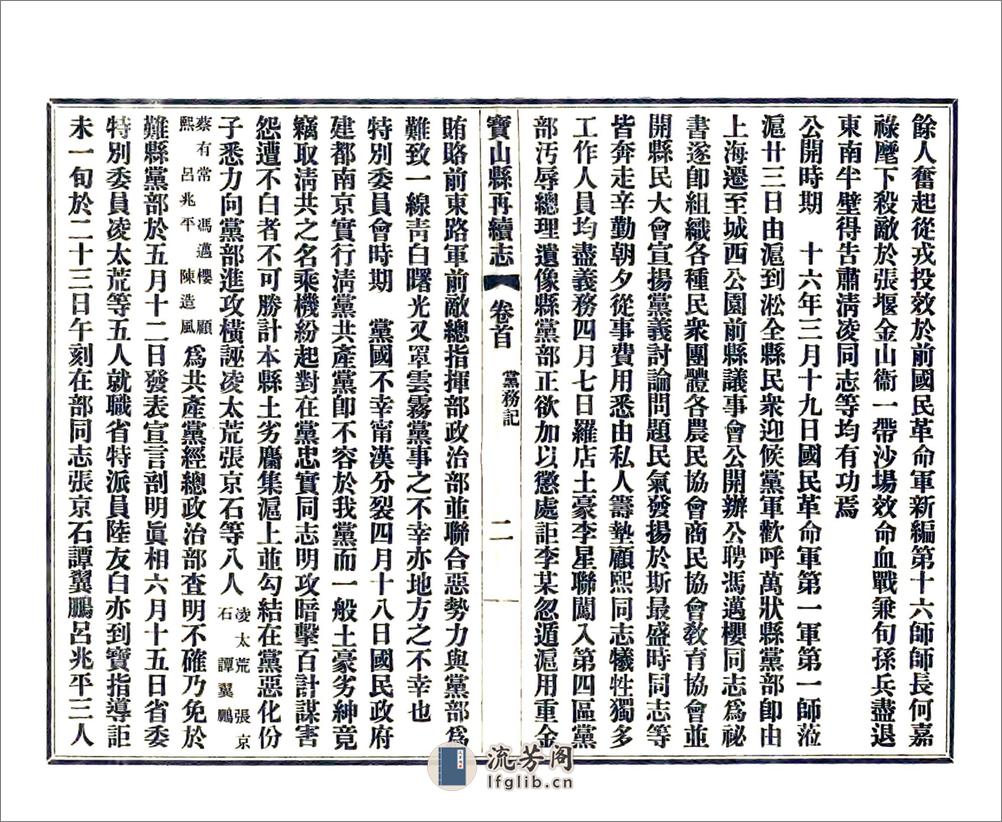 餘人奮起從戎投效於前國民革命軍新編第十六師師長何嘉
祿麾下殺敵於張堰金山衞一帶沙場效命血戰兼旬孫兵盡退
東南半壁得吿肅淸凌同志等均有功焉
公開時期　十六年三月十九日國民革命軍第一軍第一師蒞
滬廿三日由滬到淞全縣民衆迎候黨軍歡呼萬狀縣黨部卽由
上海遷至城西公園前縣議事會公開辦公聘馮邁櫻同志爲祕
書遂卽組織各種民衆團體各農民協會商民協會敎育協會並
開縣民大會宣揚黨義討論問題民氣發揚於斯最盛時同志等
皆奔走辛勤朝夕從事費用悉由私人籌墊顧熙同志犧牲獨多
工作人員均盡義務四月七日羅店土豪李星聯闖入第四區黨
部汚辱總理遺像縣黨部正欲加以懲處詎李某忽遁滬用重金
寶山縣再續志　卷首　黨務記　二
賄賂前東路軍前敵總指揮部政治部並聯合惡勢力與黨部爲
難致一線靑白曙光又罩雲霧黨事之不幸亦地方之不幸也
特別委員會時期　黨國不幸甯漢分裂四月十八日國民政府
建都南京實行淸黨共產黨卽不容於我黨而一般土豪劣紳竟
竊取淸共之名乘機紛起對在黨忠實同志明攻暗擊百計謀害
怨遭不白者不可勝計本縣土劣麕集滬上並勾結在黨惡化份
子悉力向黨部進攻橫誣凌太荒張京石等八人凌太荒　張京石　譚翼鵬
蔡有常　馮邁櫻　顧熙　呂兆平　陳造風爲共產黨經總政治部查明不確乃免於
難縣黨部於五月十二日發表宣言剖明眞相六月十五日省委
特別委員凌太荒等五人就職省特派員陸友白亦到寶指導詎
未一旬於二十三日午刻在部同志張京石譚翼鵬呂兆平三人
流芳阁
lfglib.cn